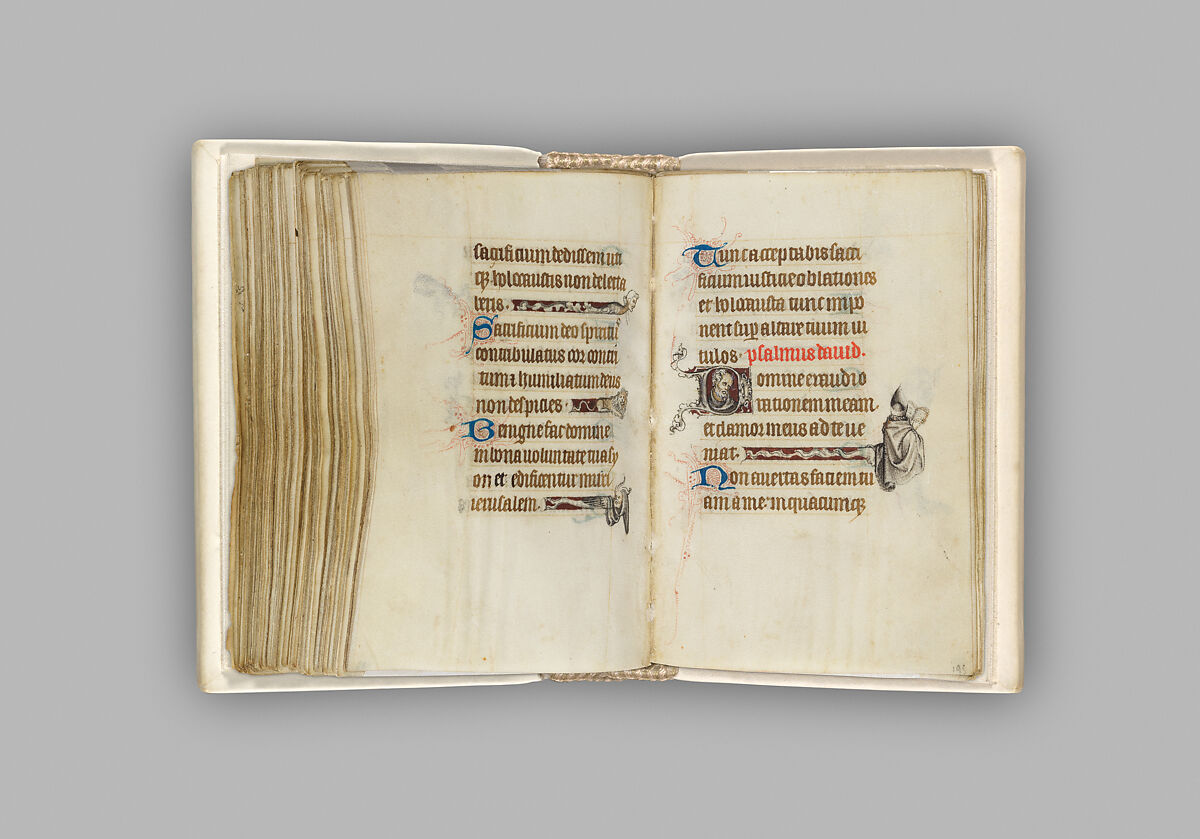 sacrificium dedissem uti
q holocaustis non delecta
beris.
Sacrificium deo spiritu
contribulatus cor contri
tum et humiliatum deus
non despicies
Benigne fac domine
in bona voluntate tua sy
on et edificentur muri
ierusalem.
Tunc acceptabis sacri
ficium iusticie oblationes
et holocausta tunc impo
nent sup altare tuum ui
tulos. psalmus dauid.
Domine exaudi o
rationem meam
et clamor meus ad te ue
niat.
Non auertas faciem tu
am a me in quacumq
195